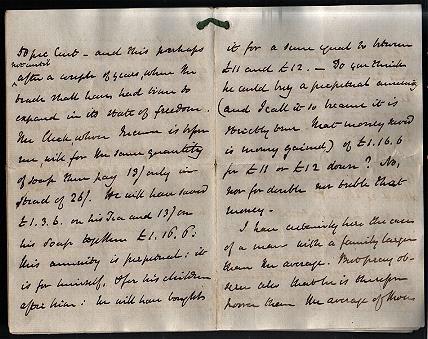 50 per Cent – and this perhaps
not until
after a couple of years, when the
trade shall have had time to
expand in its state of freedom.
The Clerk, whose Income is before
me will for the same quantity
of soap then pay 13/ only in-
stead of 26/. He will have saved
£1.3.6. on his Tea and 13/ on
his Soap together £1.16.6:
this annuity is perpetual: it
is for himself, & for his children
after him: he will have bought
it for a sum equal to between
£11 and £12. – Do you think
he could buy a perpetual annuity
(and I call it so because it is
strictly true that money saved
is money gained) of £1.16.6
for £11 or £12 down? No,
nor for double nor treble that
money.
I have certainly here the case
of a man with a family larger
than the average. But pray ob-
serve also that he is therefore
poorer than the average of those